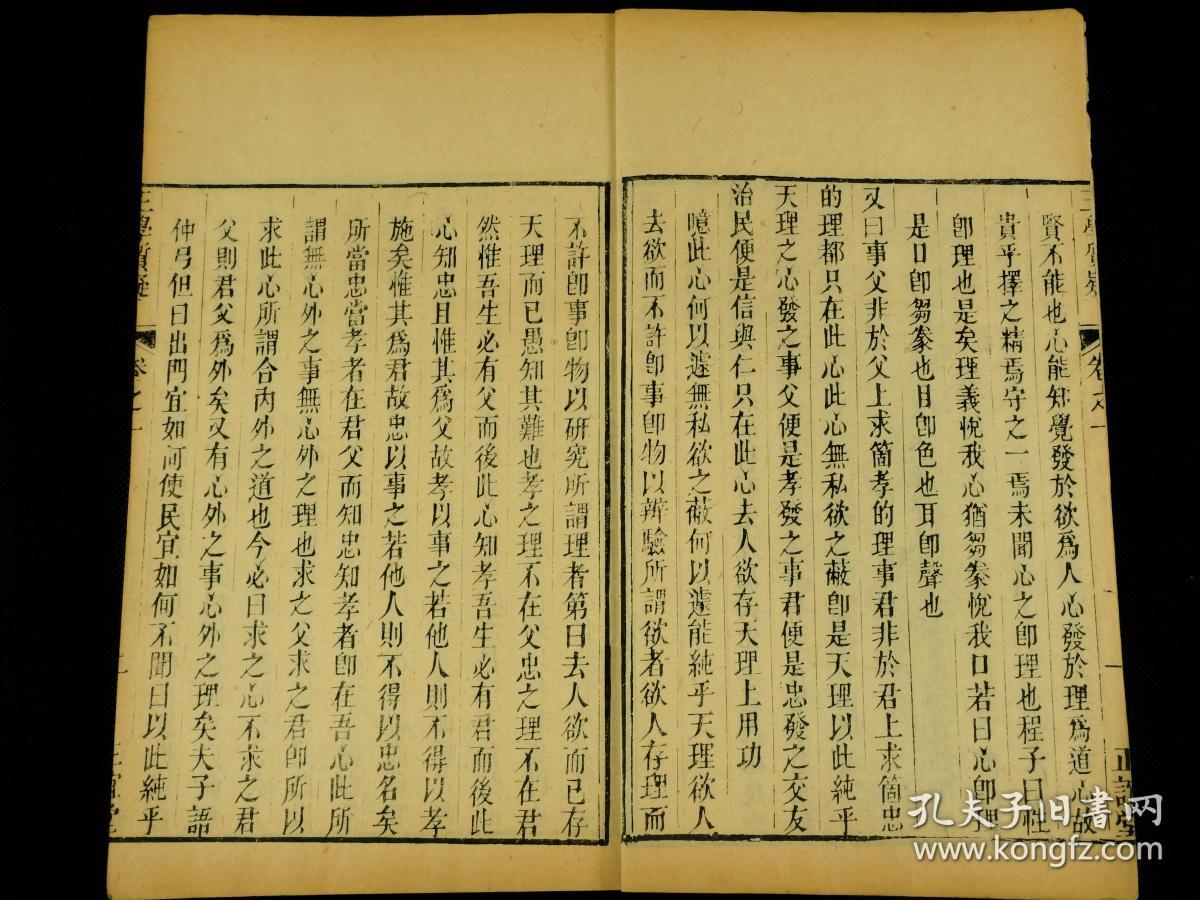 賢不能也心能知覺發於欲爲人心發於理爲道心故
貴乎擇之精焉守之一焉未聞心之卽理也程子曰性
卽理也是矣理義悅我心猶芻豢悅我口若曰心卽理
是口卽芻豢也目卽色也耳卽聲也
又曰事父非於父上求箇孝的理事君非於君上求箇忠
的理都只在此心此心無私欲之蔽卽是天理以此純乎
天理之心發之事父便是孝發之事君便是忠發之交友
治民便是信與仁只在此心去人欲存天理上用功
噫此心何以遽無私欲之蔽何以遽能純乎天理欲人
去欲而不許卽事卽物以辨驗所謂欲者欲人存理而
王學質疑
卷之一
一
正誼堂
不許卽事卽物以研究所謂理者第曰去人欲而已存
天理而已愚知其難也孝之理不在父忠之理不在君
然惟吾生必有父而後此心知孝吾生必有君而後此
心知忠且惟其爲父故孝以事之若他人則不得以孝
施矣惟其爲君故忠以事之若他人則不得以忠名矣
所當忠當孝者在君父而知忠知孝者卽在吾心此所
謂無心外之事無心外之理也求之父求之君卽所以
求此心所謂合內外之道也今必曰求之心不求之君
父則君父爲外矣又有心外之事心外之理矣夫子語
仲弓但曰出門宜如何使民宜如何不聞曰以此純乎
王學質疑
卷之一
二
正誼堂
孔夫子旧書网
www.kongfz.com